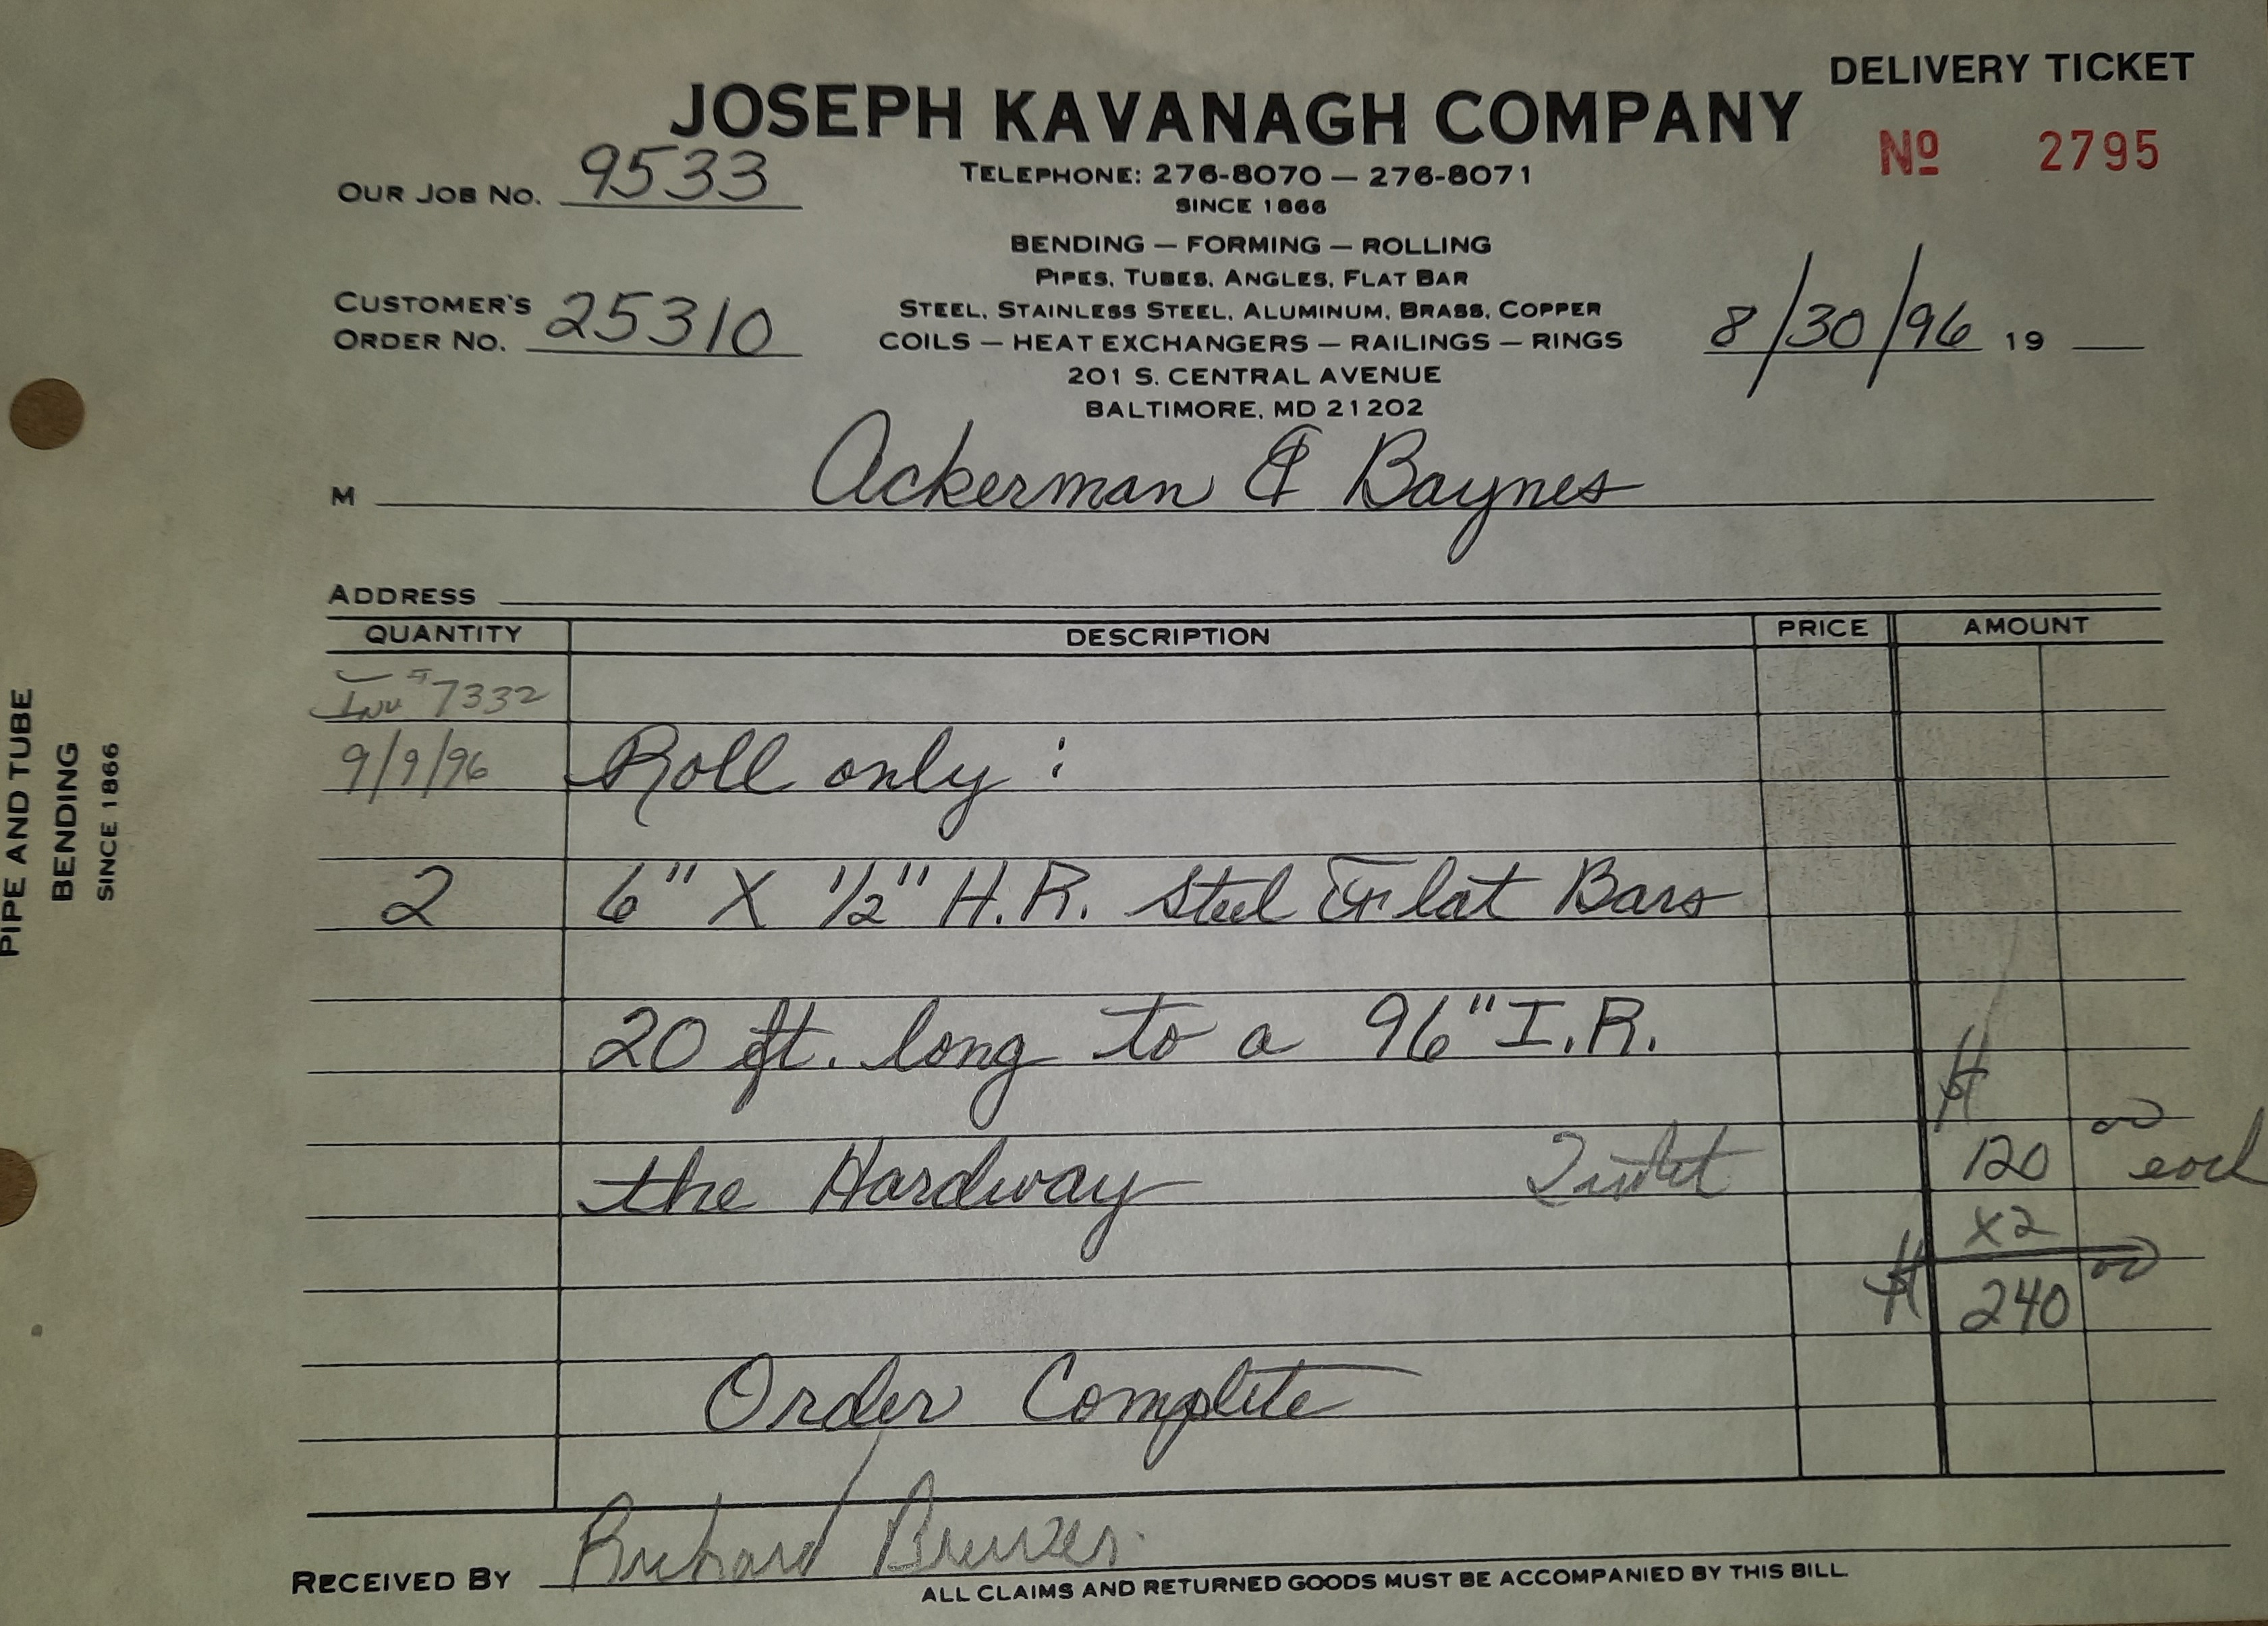 DELIVERY TICKET
JOSEPH KAVANAGH COMPANY
Nº 2795
OUR JOB NO. 9533
TELEPHONE: 276-8070 — 276-8071
SINCE 1866
BENDING — FORMING — ROLLING
PIPES, TUBES, ANGLES, FLAT BAR
CUSTOMER'S
ORDER NO. 25310
STEEL, STAINLESS STEEL, ALUMINUM, BRASS, COPPER
COILS — HEAT EXCHANGERS — RAILINGS — RINGS
8/30/96 19
201 S. CENTRAL AVENUE
BALTIMORE, MD 21202
M Ackerman & Baynes
ADDRESS
QUANTITY DESCRIPTION PRICE AMOUNT
Inv # 7332
9/9/96 Roll only :
2 6" X 1/2" H.R. Steel Flat Bars
20 ft. long to a 96" I.R.
$
the Hardway 120 00 each
x2
$ 240 00
Order Complete
RECEIVED BY Richard
ALL CLAIMS AND RETURNED GOODS MUST BE ACCOMPANIED BY THIS BILL.
PIPE AND TUBE
BENDING
SINCE 1866